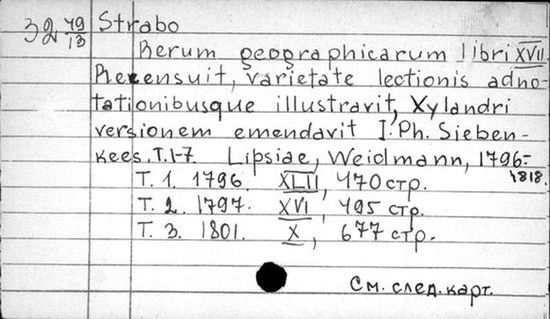 32 19/13 Strabo
Rerum geographicarum libri XVII.
Recensuit, varietate lectionis adno-
tationibusque illustravit, Xylandri
versionem emendavit I. Ph. Sieben-
kees. T. 1-7. Lipsiae, Weidmann, 1796-
1818.
T. 1. 1796. XLII, 470 стр.
T. 2. 1797. XVI, 495 стр.
T. 3. 1801. X, 677 стр.
См. след. карт.